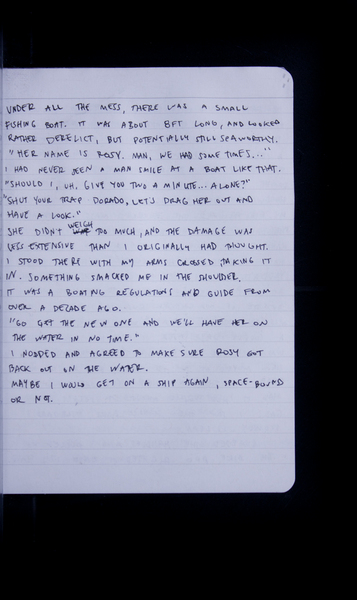 UNDER ALL THE MESS, THERE WAS A SMALL
FISHING BOAT. IT WAS ABOUT 8FT LONG, AND LOOKED
RATHER DERELICT, BUT POTENTIALLY STILL SEAWORTHY.
"HER NAME IS ROSY. MAN, WE HAD SOME TIMES..."
I HAD NEVER SEEN A MAN SMILE AT A BOAT LIKE THAT.
"SHOULD I, UH, GIVE YOU TWO A MINUTE... ALONE?"
"SHUT YOUR TRAP DORADO, LET'S DRAG HER OUT AND
HAVE A LOOK."
SHE DIDN'T WEIGH TOO MUCH, AND THE DAMAGE WAS
LESS EXTENSIVE THAN I ORIGINALLY HAD THOUGHT.
I STOOD THERE WITH MY ARMS CROSSED, TAKING IT
IN. SOMETHING SMACKED ME IN THE SHOULDER.
IT WAS A BOATING REGULATIONS AND GUIDE FROM
OVER A DECADE AGO.
"GO GET THE NEW ONE AND WE'LL HAVE HER ON
THE WATER IN NO TIME."
I NODDED AND AGREED TO MAKE SURE ROSY GOT
BACK OUT ON THE WATER.
MAYBE I WOULD GET ON A SHIP AGAIN, SPACE-BOUND
OR NOT.